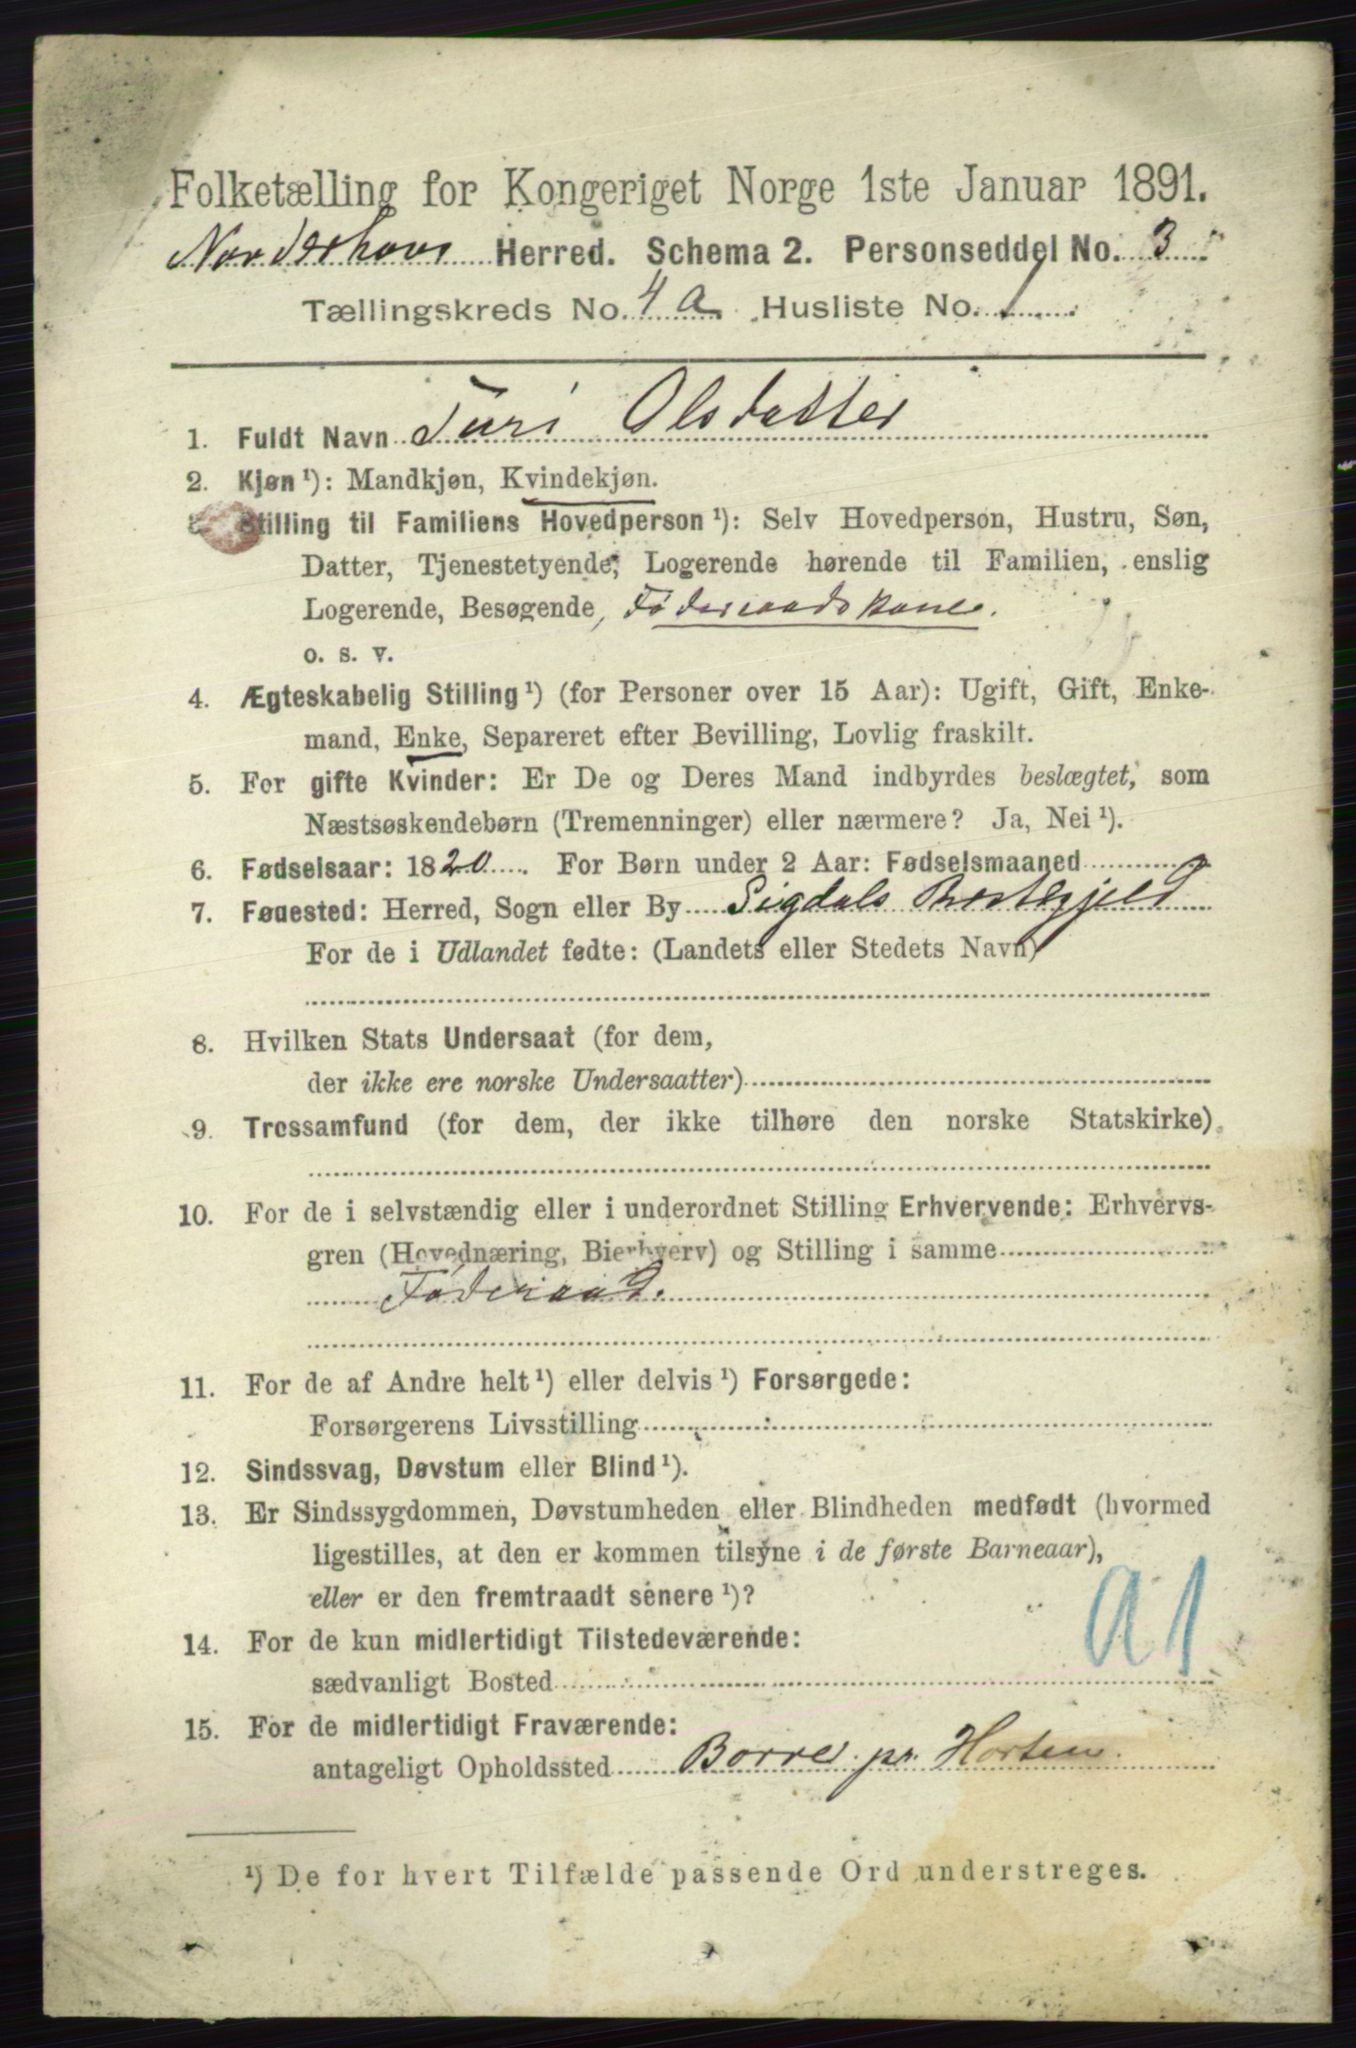 Folketælling for Kongeriget Norge 1ste Januar 1891.
Norderhovs Herred. Schema 2. Personseddel No. 3
Tællingskreds No. 4 a. Husliste No. 1
1. Fuldt Navn Turi Olsdatter
2. Kjøn ¹): Mandkjøn, Kvindekjøn.
Stilling til Familiens Hovedperson ¹): Selv Hovedperson, Hustru, Søn,
Datter, Tjenestetyende, Logerende hørende til Familien, enslig
Logerende, Besøgende, Føderaadskone.
o. s. v.
4. Ægteskabelig Stilling ¹) (for Personer over 15 Aar): Ugift, Gift, Enke-
mand, Enke, Separeret efter Bevilling, Lovlig fraskilt.
5. For gifte Kvinder: Er De og Deres Mand indbyrdes beslægtet, som
Næstsøskendebørn (Tremenninger) eller nærmere? Ja, Nei ¹).
6. Fødselsaar: 1820. For Børn under 2 Aar: Fødselsmaaned
7. Fødested: Herred, Sogn eller By Sigdals Prestegjeld
For de i Udlandet fødte: (Landets eller Stedets Navn)
8. Hvilken Stats Undersaat (for dem,
der ikke ere norske Undersaatter)
9. Trossamfund (for dem, der ikke tilhøre den norske Statskirke)
10. For de i selvstændig eller i underordnet Stilling Erhvervende: Erhvervs-
gren (Hovednæring, Bierhverv) og Stilling i samme
Føderaad.
11. For de af Andre helt ¹) eller delvis ¹) Forsørgede:
Forsørgerens Livsstilling
12. Sindssvag, Døvstum eller Blind ¹).
13. Er Sindssygdommen, Døvstumheden eller Blindheden medfødt (hvormed
ligestilles, at den er kommen tilsyne i de første Barneaar),
eller er den fremtraadt senere ¹)?
a 1
14. For de kun midlertidigt Tilstedeværende:
sædvanligt Bosted
15. For de midlertidigt Fraværende:
antageligt Opholdssted Borre pr. Horten.
¹) De for hvert Tilfælde passende Ord understreges.